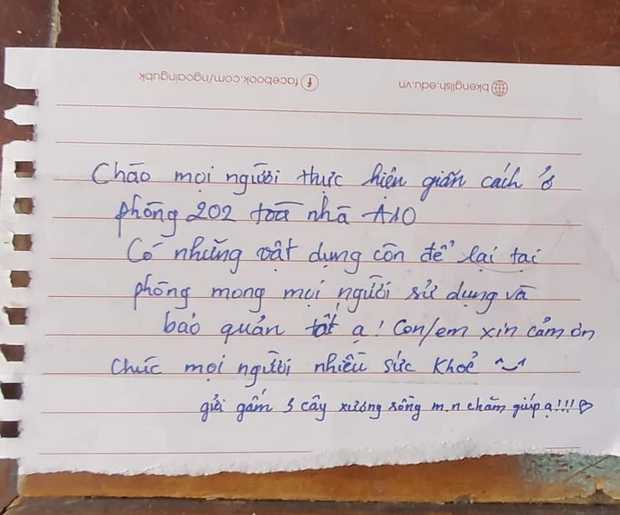 bkenglish.edu.vn facebook.com/ngoaingubk
Chào mọi người thực hiện giãn cách ở
phòng 202 toà nhà A10
Có những vật dụng còn để lại tại
phòng mong mọi người sử dụng và
bảo quản tốt ạ! Con/em xin cảm ơn
Chúc mọi người nhiều sức khoẻ
gửi gắm 3 cây xương rồng m.n chăm giúp ạ!!!